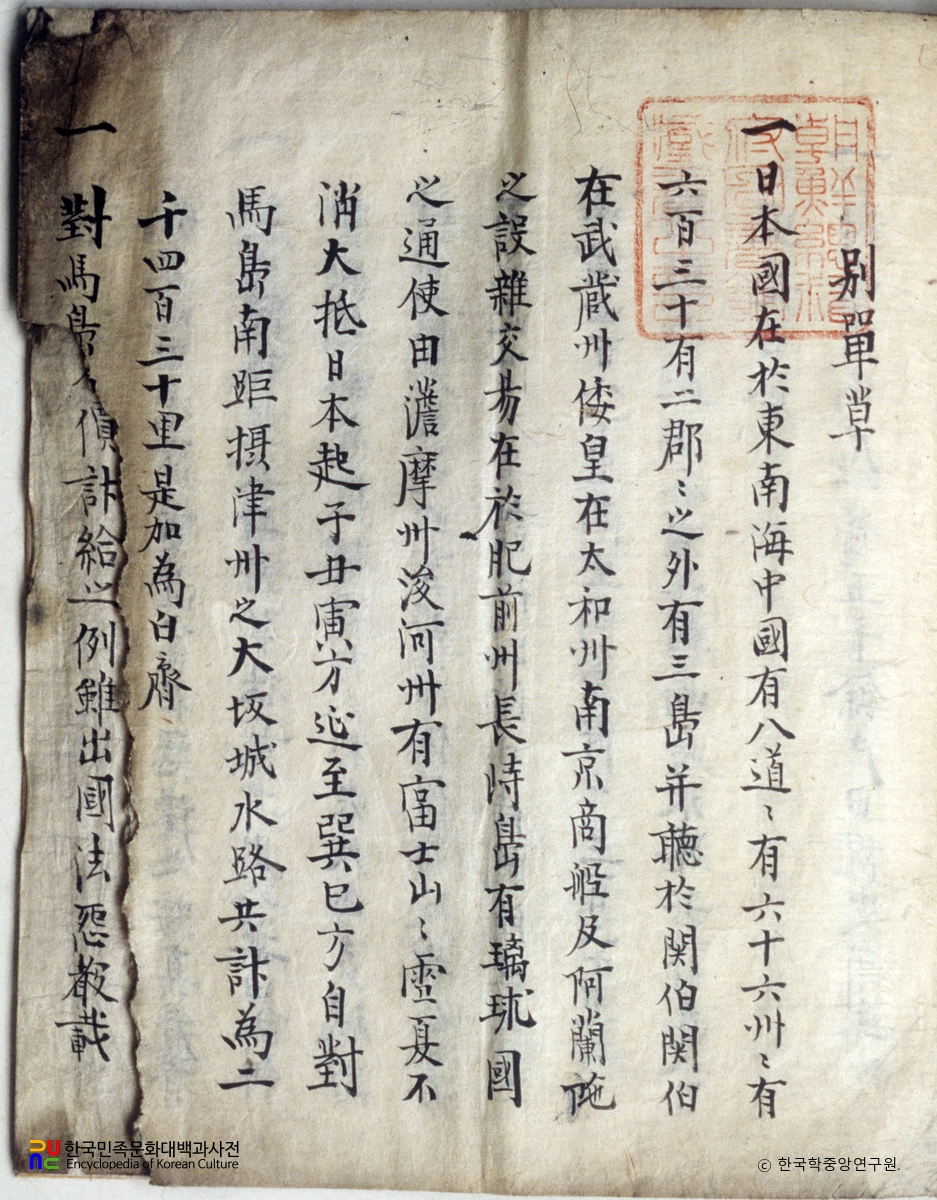 別單草
一日本國在於東南海中國有八道〻有六十六州〻有
六百三十有二郡〻之外有三島并聽於関伯関伯
在武蔵州倭皇在太和州南京商舩及阿蘭陁
之設雜交易在於肥前州長崎島有琉球國
之通使由薩摩州浚河州有富士山〻雪夏不
消大抵日本起于丑寅方延至巽巳方自對
馬島南距摂津州之大坂城水路共計為二
千四百三十里是加為白齊
一對馬島 偵 給之例雖出國法 載
한국민족문화대백과사전
Encyclopedia of Korean Culture
© 한국학중앙연구원.